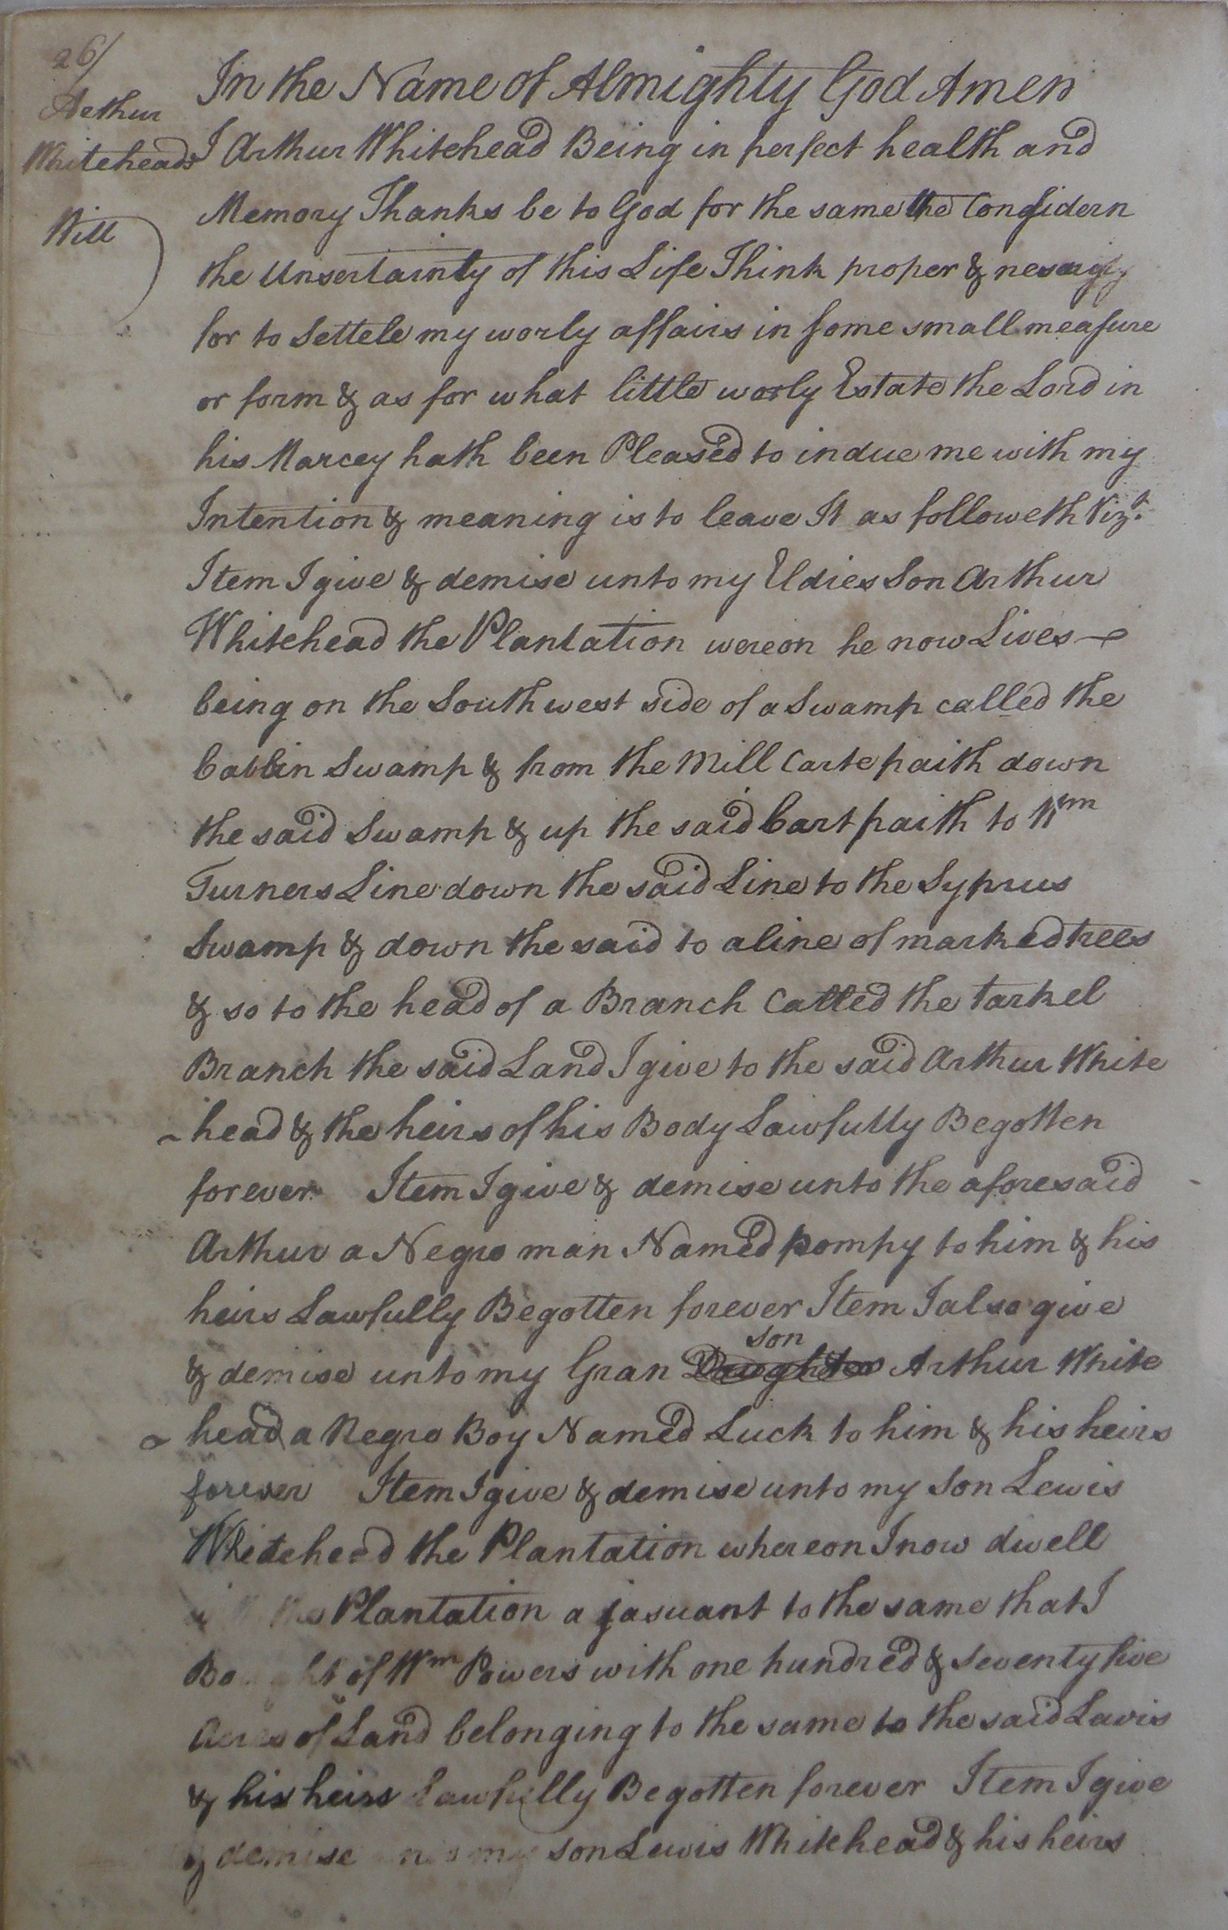 26/
Arthur
Whiteheads
Will
In the Name of Almighty God Amen
I Arthur Whitehead Being in perfect health and
Memory Thanks be to God for the same the Considern
the Unsertainty of this Life Think proper &
for to Settele my worly affairs in some small measure
or form & as for what little worly Estate the Lord in
his Marcey hath been Pleased to indue me with my
Intention & meaning is to leave It as followeth Vizt.
Item I give & demise unto my Eldies Son Arthur
Whitehead the Plantation wereon he now Lives
being on the Southwest side of a Swamp called the
Cabbin Swamp & from the Mill Carte paith down
the said Swamp & up the said Cart paith to Wm
Turners Line down the said Line to the Syprus
Swamp & down the said to a line of marked trees
& so to the head of a Branch Called the tarkel
Branch the said Land I give to the said Arthur White
head & the heirs of his Body Lawfully Begotten
forever Item I give & demise unto the aforesaid
Arthur a Negro man Named Pompy to him & his
heirs Lawfully Begotten forever Item I also give
son
& demise unto my Gran Daughter Arthur White
head a Negro Boy Named Luck to him & his heirs
forever Item I give & demise unto my Son Lewis
Whitehead the Plantation whereon I now dwell
the Plantation a jasuant to the same that I
Bought of Wm Powers with one hundred & seventy five
Acres of Land belonging to the same to the said Lewis
& his heirs Lawfully Begotten forever Item I give
& demise unto my son Lewis Whitehead & his heirs